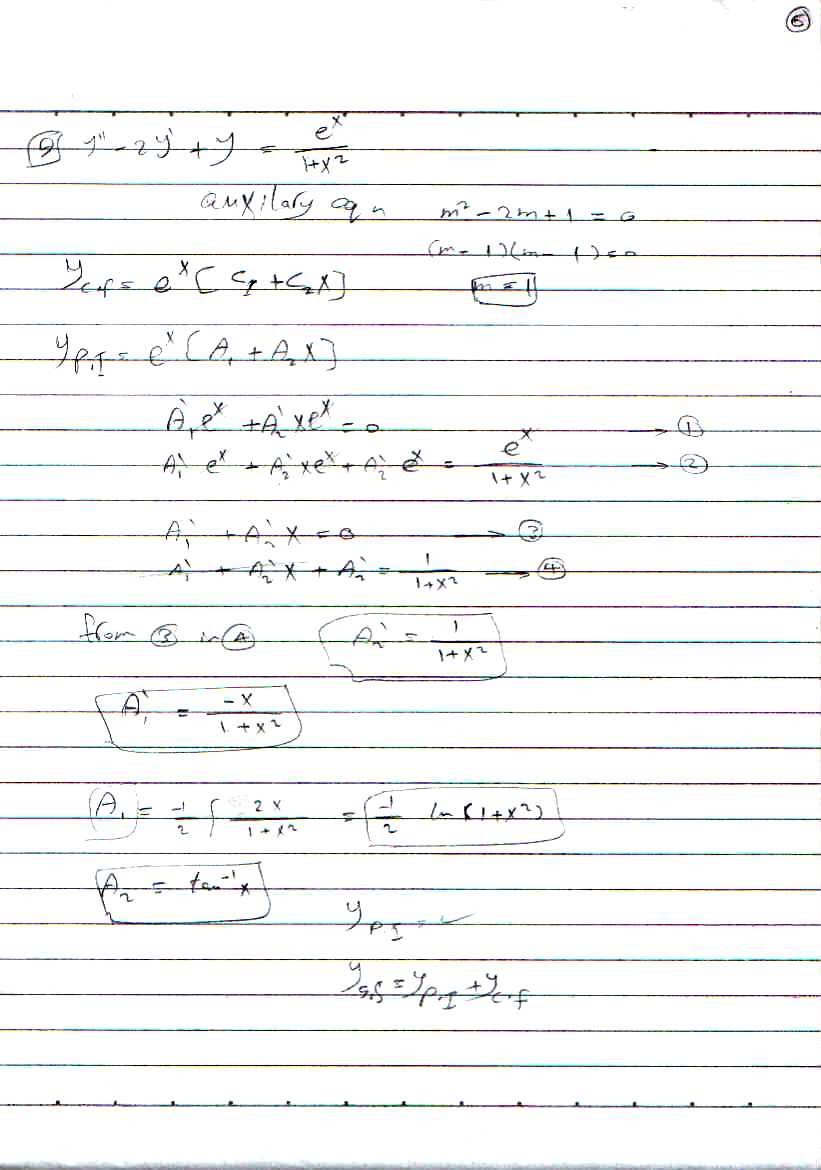 5
9 y'' - 2y' + y = e^x / (1+x^2)
auxilary eqn m^2 - 2m + 1 = 0
(m-1)(m-1) = 0
y_c.f = e^x [C_1 + C_2 x] m = 1
y_P.I = e^x [A_1 + A_2 x]
A_1' e^x + A_2' x e^x = 0 → ①
A_1' e^x + A_2' x e^x + A_2' e^x = e^x / (1+x^2) → ②
A_1' + A_2' x = 0 → ③
A_1' + A_2' x + A_2' = 1 / (1+x^2) → ④
from ③ in ④ A_2' = 1 / (1+x^2)
A_1' = -x / (1+x^2)
A_1 = -1/2 ∫ 2x / (1+x^2) = -1/2 ln(1+x^2)
A_2 = tan^-1 x
y_P.I = ✓
y_G.S = y_P.I + y_c.f